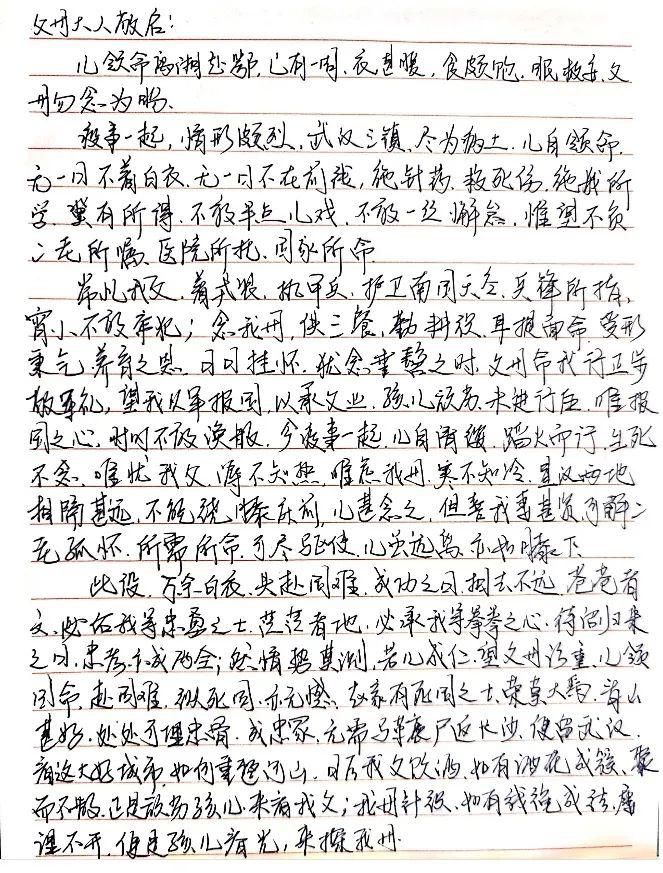 父母大人敬启：
儿领命离湘赴鄂，已有一周，衣甚暖，食颇饱，眠极安，父
母勿念为盼、
疫事一起，情形颇烈，武汉三镇，尽为病土，儿自领命，
无一日不着白衣，无一日不在前线，施针药，救死伤，施我所
学，冀有所得，不敢半点儿戏，不敢一丝懈怠，惟望不负
二老所嘱，医院所托，国家所命
常忆我父，着戎装，执甲兵，护卫南国天空，兵锋所指，
宵小不敢来犯；念我母，供三餐，勤耕役，耳提面命，受形
秉气，养育之恩，日日挂怀，犹念垂髫之时，父母命我行正步
敬军礼，望我从军报国，以承父业，孩儿放劣，未进行伍，唯报
国之心，时时不敢涣散，今疫事一起，儿自请缨，蹈火而行，生死
不念，唯忧我父，溽不知热，唯虑我母，寒不知冷，星汉两地
相隔甚远，不能绕膝床前，儿甚念之，但吾我妻甚贤，可解二
老孤怀，所需所命，可尽驱使，儿虽远离，亦如膝下、
此役，万千白衣，共赴国难，成功之日，相去不远，苍苍者
文，必佑我等忠勇之士，茫茫者地，必承我等拳拳之心，待归巢
之日，忠孝亦成两全；然情势莫测，若儿成仁，望父母珍重，儿领
国命，赴国难，纵死国，亦无憾，赵家有死国之士，荣莫大焉，青山
甚好，处处可埋忠骨，成忠冢，无需马革裹尸返长沙，便留武汉，
看这大好城市，如何重整河山，日后我父饮酒，如有酒花成簇，聚
而不散，正是放劣孩儿，来看我父；我母针织，如有线绕成结，屡
理不开，便是孩儿春光，来探我母